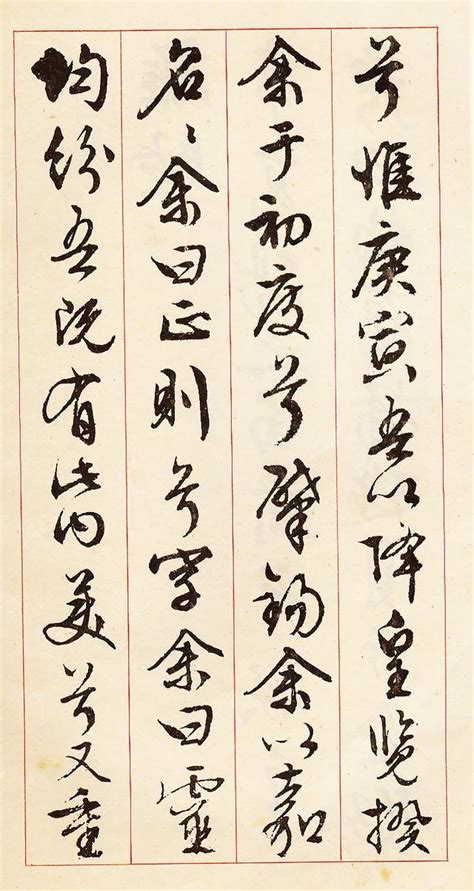 兮惟庚寅吾以降皇覽揆
余于初度兮肇錫余以嘉
名〻余曰正則兮字余曰靈
均紛吾既有此内美兮又重